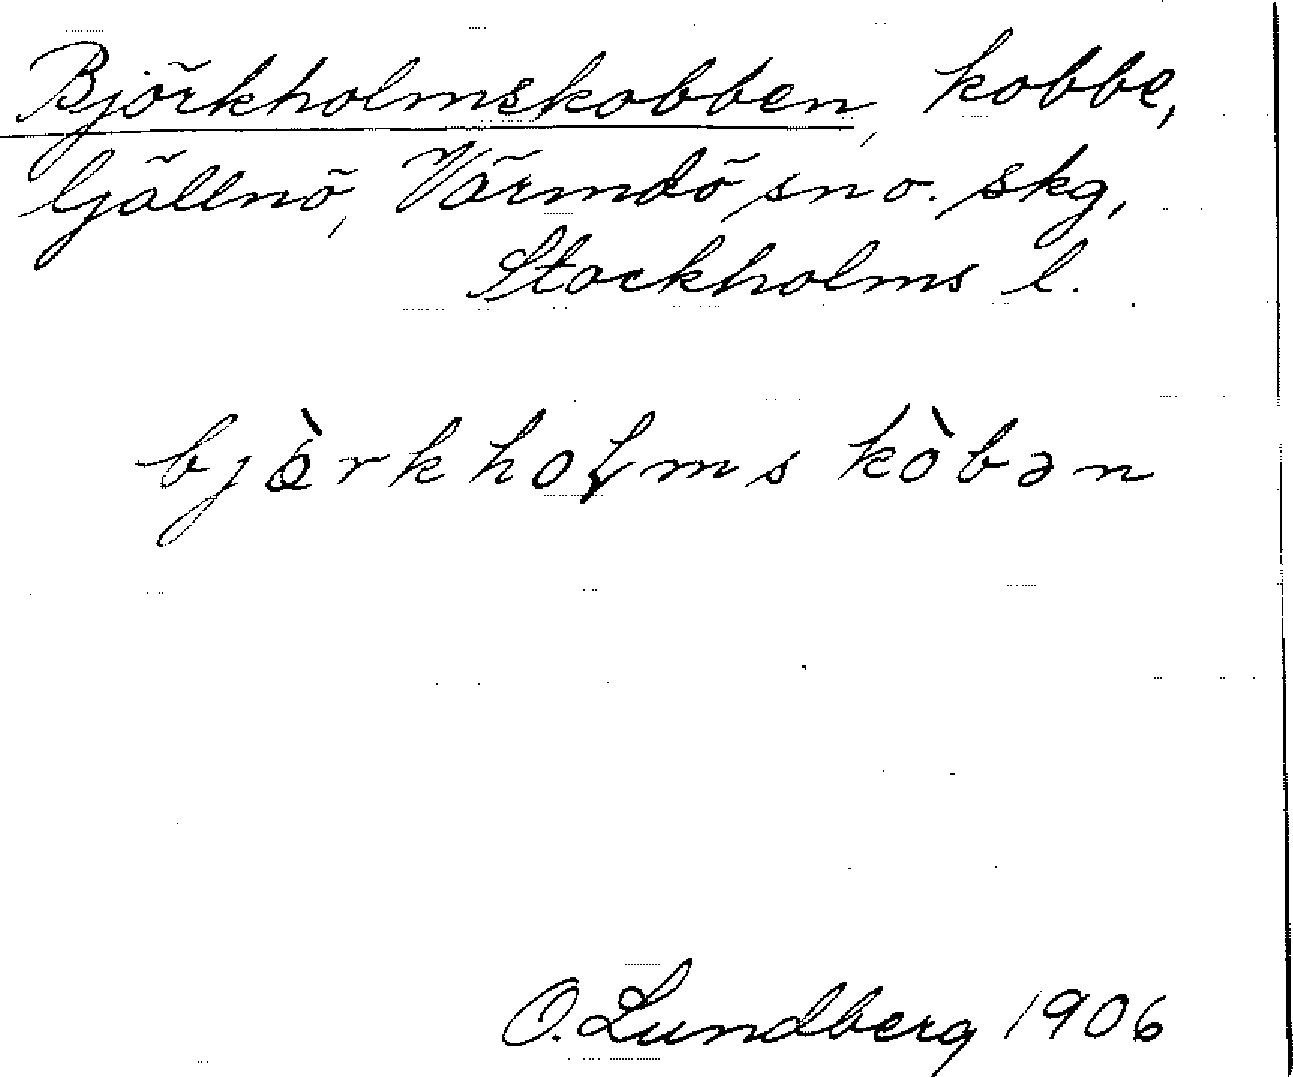 Björkholmskobben, kobbe,
Gällnö, Värmdö sn o. skg,
Stockholms l.
bjòrkhoɭms kòbən
O. Lundberg 1906